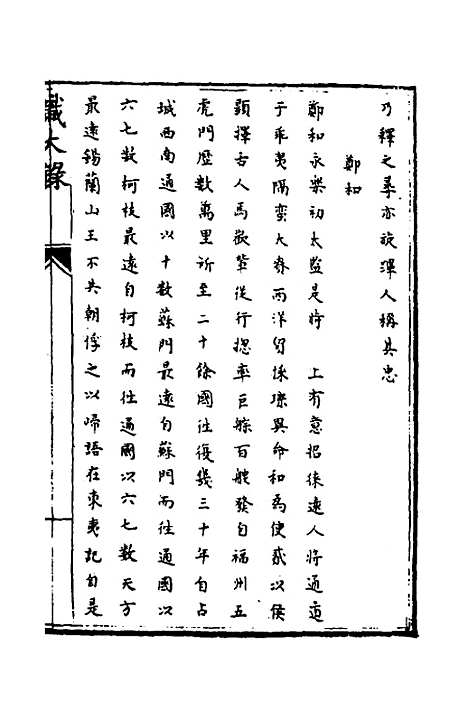 乃釋之尋亦旋渾人稱其忠
鄭和
鄭和永樂初太監是時　上有意招徠遠人將通道
于乖夷隔蠻大賚西洋貿採琛異命和爲使貳以侯
顯擇古人馬歡輩從行揔率巨䑸百艘發自福州五
虎門歷數萬里所至二十餘國往復幾三十年自占
城西南通國以十數蘇門最遠自蘇門而往通國以
六七數柯枝最遠自柯枝而往通國以六七數天方
最遠錫蘭山王不共朝俘之以歸語在東夷記自是
識大錄